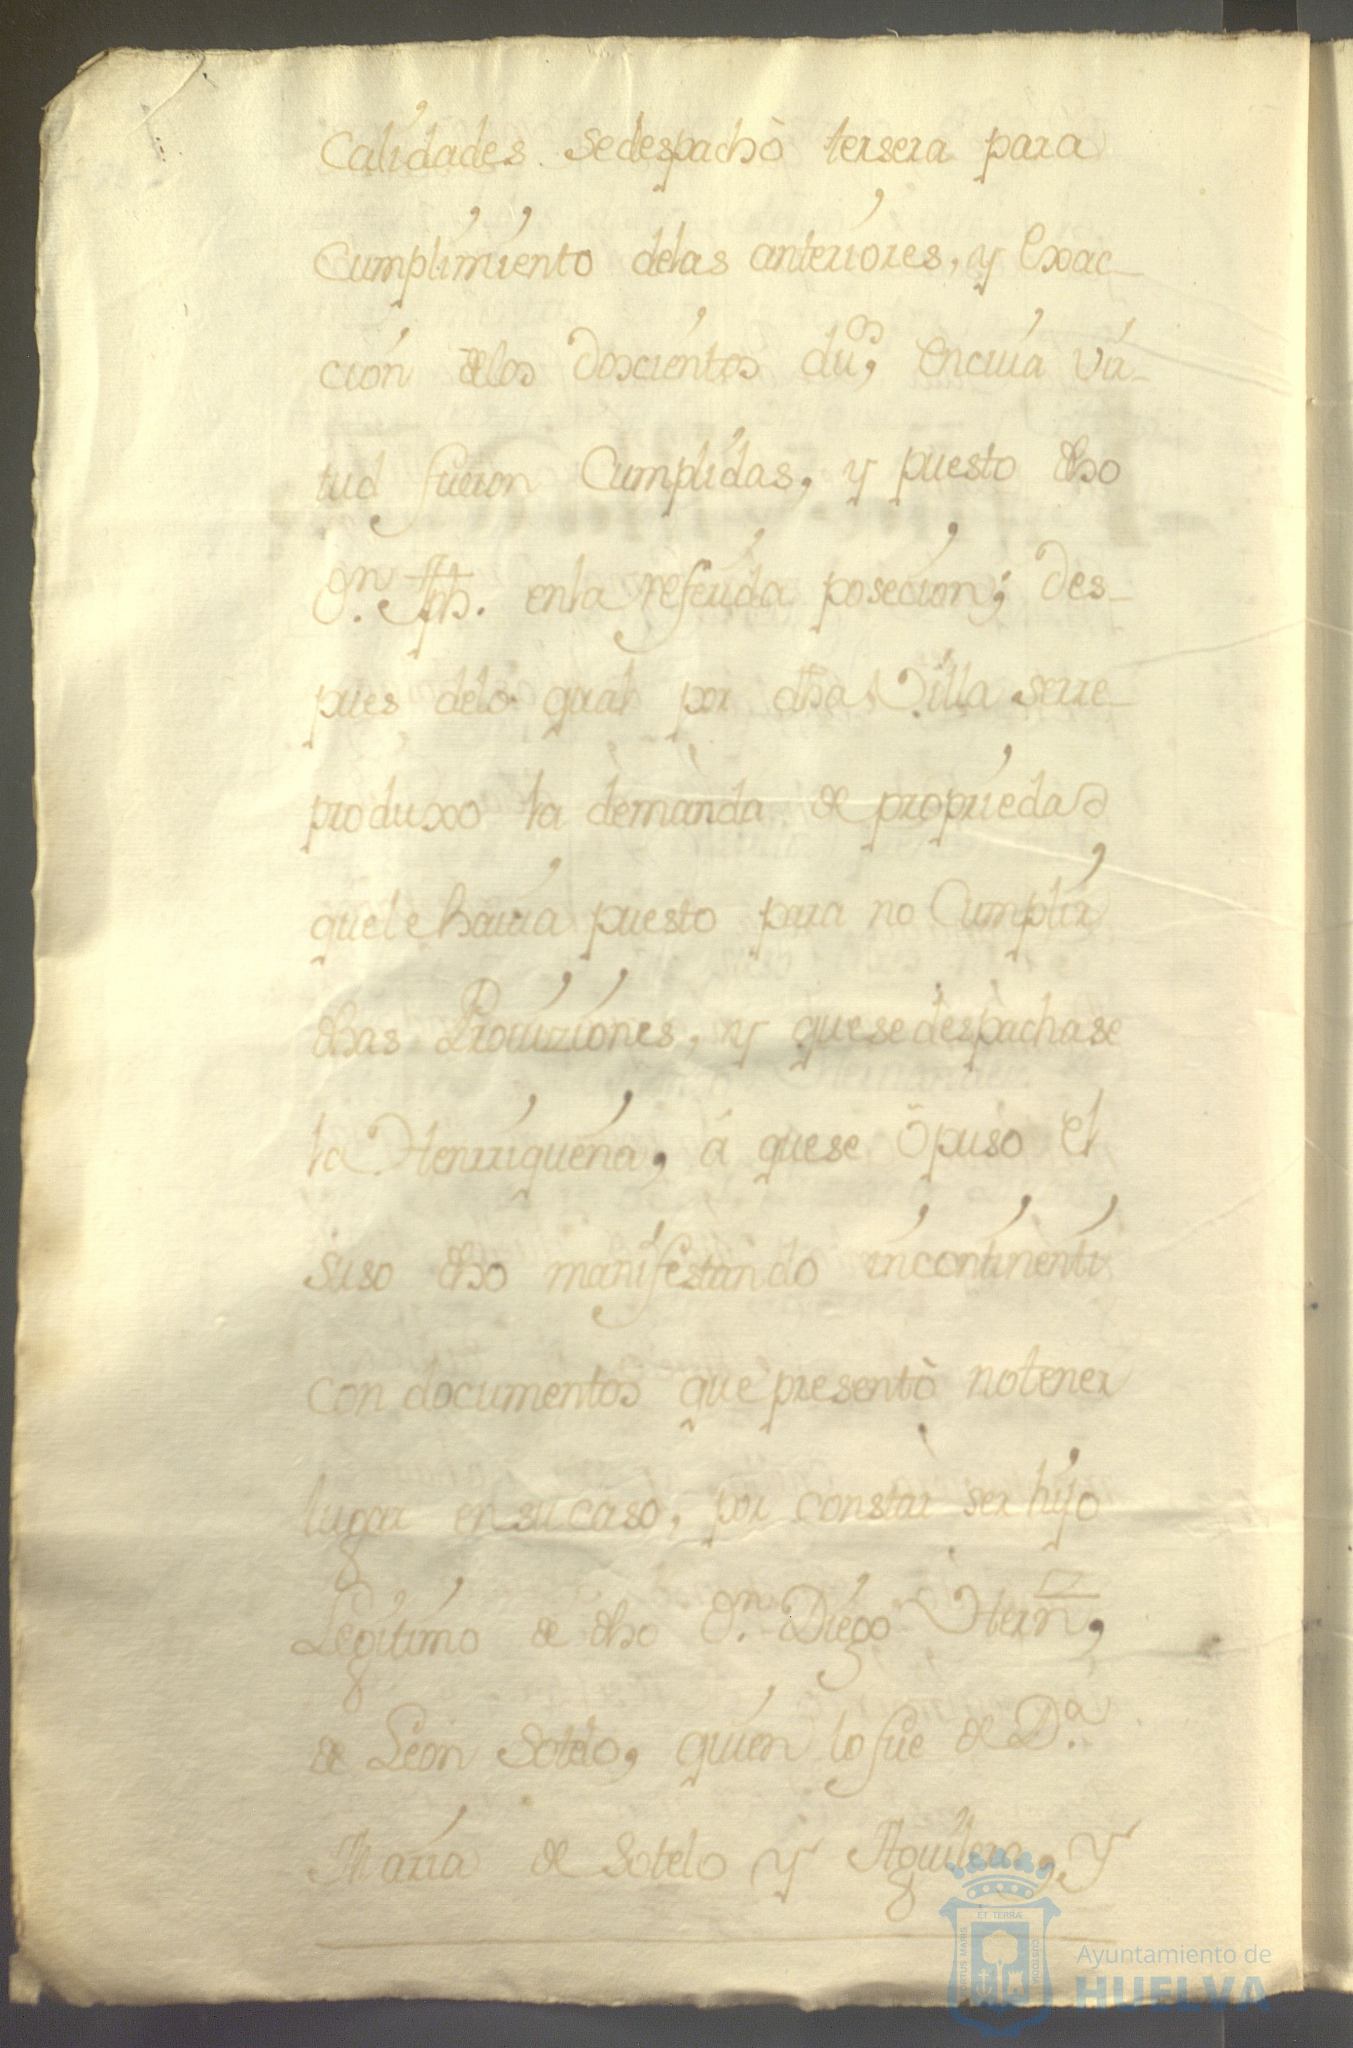 Calidades. sedespachò tersera para
Cumplimiento delas anteriores, y Exac-
cion delos Doscientos du.os, Encuia vir-
tud fueron Cumplidas, y puesto dho
Dn. Jph. enla referida posecion; Des-
pues delo qual por dha Villa serre-
produxo la demanda de propriedad
quele havia puesto para no Cumplir
dhas Proviziones, y quese despachase
la Henrriqueña, á quese Opuso el
suso dho manifestando incontinenti
con documentos que presentò notener
lugar ensucaso, por constar ser hijo
Legitimo de dho Dn. Diego Hern,
de Leon Sotelo, quien lo fue de D.a
Maria de Sotelo y Aguilera, y
ET TERRÆ
PORTUS MARIS
CUSTODIA
Ayuntamiento de
HUELVA